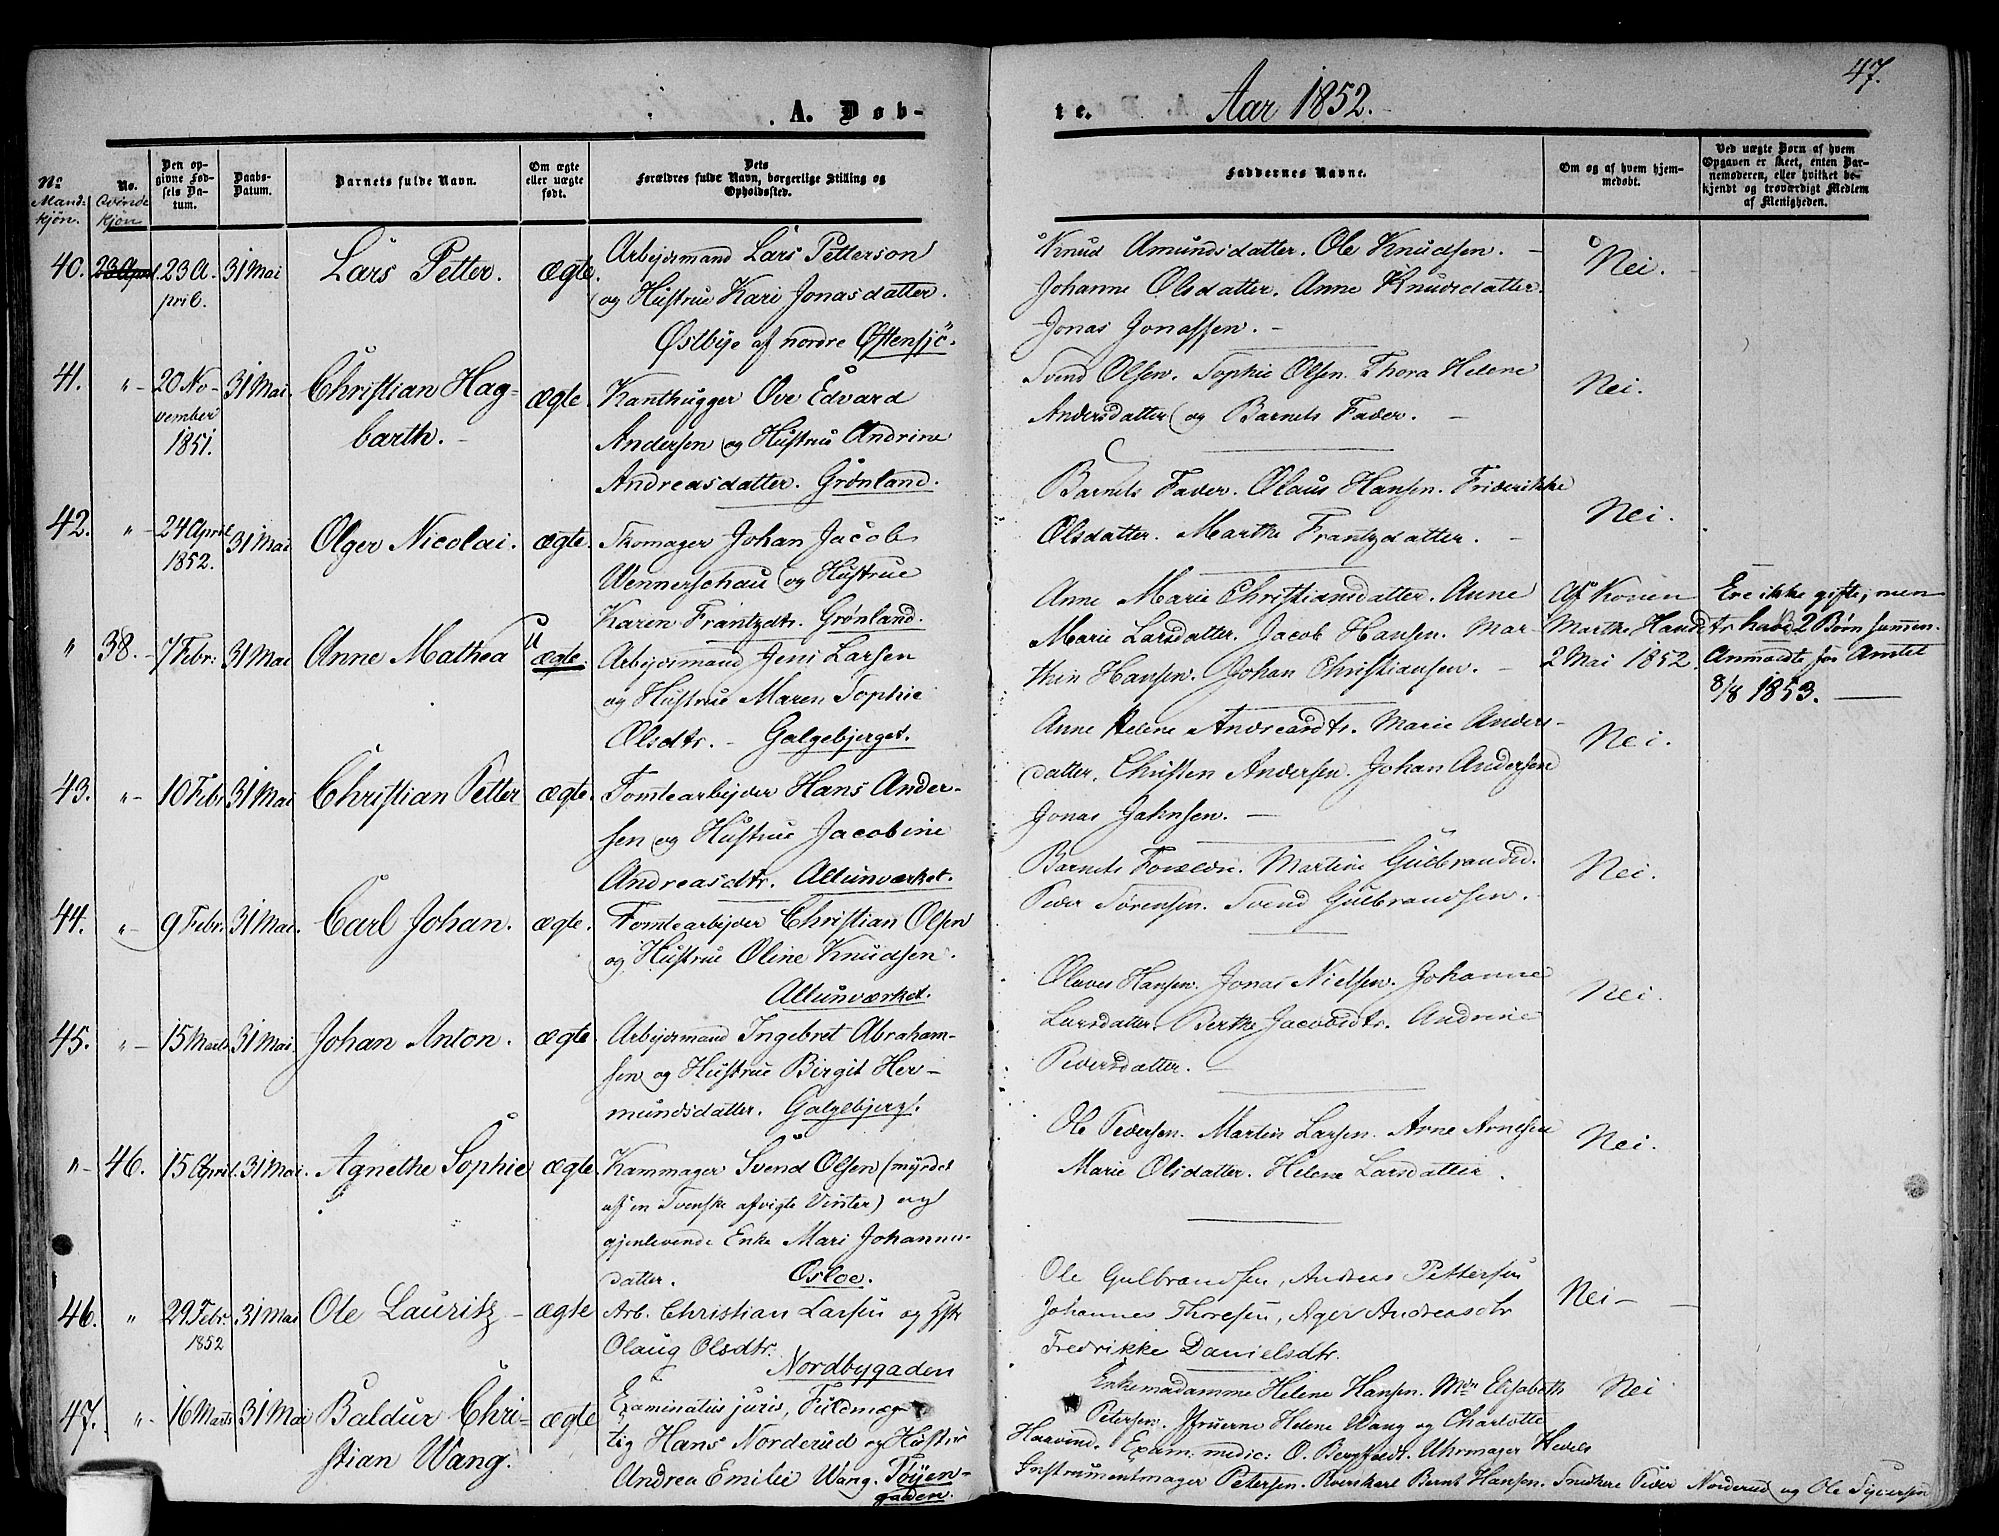 47.
A. Døb-
te.
Aar 1852.
No. Mandkjön.
No. Qvindekjön
Den opgivne Fødsels Datum.
Daabs-Datum.
Barnets fulde Navn.
Om ægte eller uægte født.
Dets Forældres fulde Navn, borgerlige Stilling og Opholdssted.
Faddernes Navne.
Om og af hvem hjemmedøbt.
Ved uægte Børn af hvem Opgaven er skeet, enten Barnemoderen, eller hvilket bekjendt og troværdigt Medlem af Menigheden.
40. 23 April 23 A- 31 Mai Lars Petter. ægte. Arbejdsmand Lars Petterson
pril. og Hustrue Kari Jonasdatter.
Østbye af nordre Østensjö.
Knud Amundsdatter. Ole Knudsen. -
Johanne Olsdatter. Anne Knudsdatter.
Jonas Jonassen. -
Nei.
41. " - 20 No- 31 Mai. Christian Hag- ægte. Kanthugger Ove Edvard
vember barth. - Andersen og Hustrue Andrine
1851. Andreasdatter. Grønland.
Svend Olsen. Sophie Olsen. Thora Helene
Andersdatter og Barnets Fader. -
Nei.
42. " - 24 April 31 Mai Olger Nicolai. ægte. Skomager Johan Jacob
1852. Wennerschau og Hustrue
Karen Frantzdtr. Grønland.
Barnets Fader. Olaus Hansen. Friderikke
Olsdatter. Marthe Frantzdatter. -
Nei.
" 38. 7 Febr. 31 Mai Anne Mathea u ægte. Arbejdsmand Jens Larsen
og Hustrue Maren Sophie
Olsdtr. - Galgebjerget.
Anne Marie Christiansdatter. Anne
Marie Larsdatter. Jacob Hansen. Mar-
thin Hansen. Johan Christiansen. -
Af Konen
Marthe Hansdtr
2 Mai 1852.
Ere ikke gifte, men
have 2 Børn sammen.
Anmeldte for Amtet
8/8 1853.
43. " - 10 Febr. 31 Mai Christian Petter ægte. Tomtearbejder Hans Ander-
sen og Hustrue Jacobine
Andreasdtr. Allunværket.
Anne Helene Andreasdtr. Marie Anders-
datter. Christen Andersen. Johan Andersen
Jonas Jahnsen. -
Nei.
44. " - 9 Febr. 31 Mai. Carl Johan. ægte. Tomtearbejder Christian Olsen
og Hustrue Oline Knudsen.
Allunværket.
Barnets Forældre. Martine Gulbrandsd.
Peder Sørensen. Svend Gulbrandsen. -
Nei.
45. " - 15 Marts 31 Mai. Johan Anton. ægte. Arbejdsmand Ingebret Abraham-
sen og Hustrue Birgit Her-
mundsdatter. Galgebjergt.
Olaves Hansen. Jonas Nielsen. Johanne
Larsdatter. Berthe Jacobsdtr. Andrine
Pedersdatter. -
Nei.
" - 46. 15 April. 31 Mai. Agnethe Sophie ægte. Kammager Svend Olsen (myrdet
af en Svenske afvigte Vinter) og
gjenlevende Enke Mari Johannes-
datter. Osloe.
Ole Pedersen. Martin Larsen. Arne Arnesen
Marie Olsdatter. Helene Larsdatter.
Nei.
46. " 29 Febr. 31 Mai Ole Lauritz - ægte Arb. Christian Larsen og Hstr
1852 Olaug Olsdtr.
Nordbygaden
Ole Gulbrandsen, Andreas Pettersen
Johannes Thoresen, Ager Andreasdtr
Fredrikke Danielsdtr.
Nei - -
47. " - 16 Marts 31 Mai Baldur Chri- ægte Examinatus juris, Fuldmæg-
stian Wang. tig Hans Norderud og Hustru
Andrea Emilie Wang. Tøyen-
gaden.
Enkemadamme Helene Hansen. Mdm Elisabeth
Petersen. Jfruerne Helene Wang og Charlotte
Haavind. Exam: medic: O. Bergfeldt. Uhrmager
Instrumentmager Petersen. Bernt Hansen. Snedkere Peder Norderud og Ole Syversen
Nei